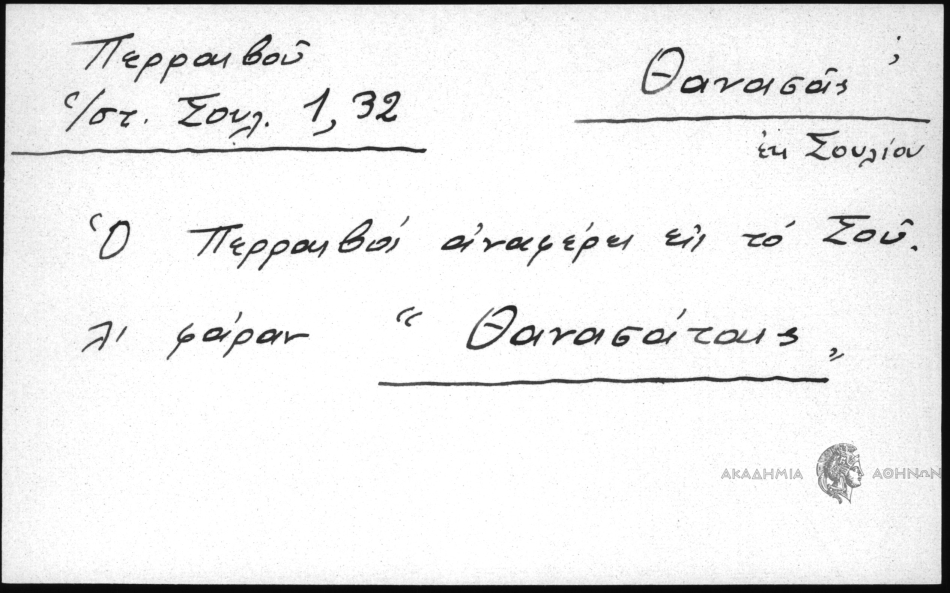 Περραιβοῦ
Ἱστ. Σουλ. 1, 32
Θανασᾶς ;
ἐκ Σουλίου
Ὁ Περραιβός ἀναφέρει εἰς τό Σού-
λι φάραν " Θανασάταις "
ΑΚΑΔΗΜΙΑ ΑΘΗΝΩΝ